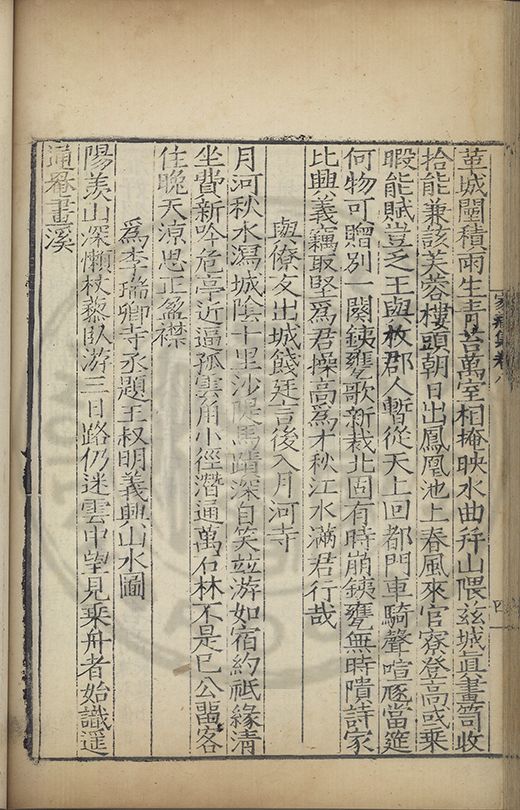 萬城闉積雨生青苔萬室相掩映水曲幷山隈兹城眞畫笥收
拾能兼該芙蓉樓頭朝日出鳳凰池上春風來官寮登高或乘
暇能賦豈乏王與枚郡人暫從天上回都門車騎聲喧豗當筵
何物可贈別一闋銕甕歌新裁北固有時崩銕甕無時隤詩家
比興義竊取堅爲君操高爲才秋江水滿君行哉
與僚友出城餞廷言後入月河寺
月河秋水瀉城陰十里沙隄馬蹟深自笑玆游如宿約祗緣清
坐費新吟危亭近逼孤雲用小徑潛通萬石林不是巳公畱客
住晚天凉思正盈襟
爲李瑞卿寺丞題王叔明義興山水圖
陽羡山深懶杖藜臥游三日路仍迷雲中望見乘舟者始識遥
通罨畫溪
家藏集卷八
四